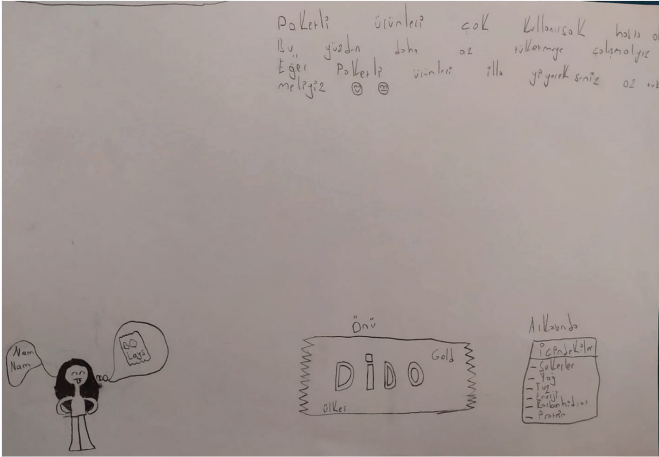 Paketli ürünleri çok kullanırsak hasta o
Bu yüzden daha az tüketmeye çalışmalıyız
Eğer Paketli ürünleri illa yiyecekseniz az tük
meliyiz
Nam
Nam
Lays
Önü
DİDO
Gold
ülker
Arkasında
İçindekiler
- Şekerler
- Yağ
- Tuz
- Enerji
- Karbonhidrat
- Protein